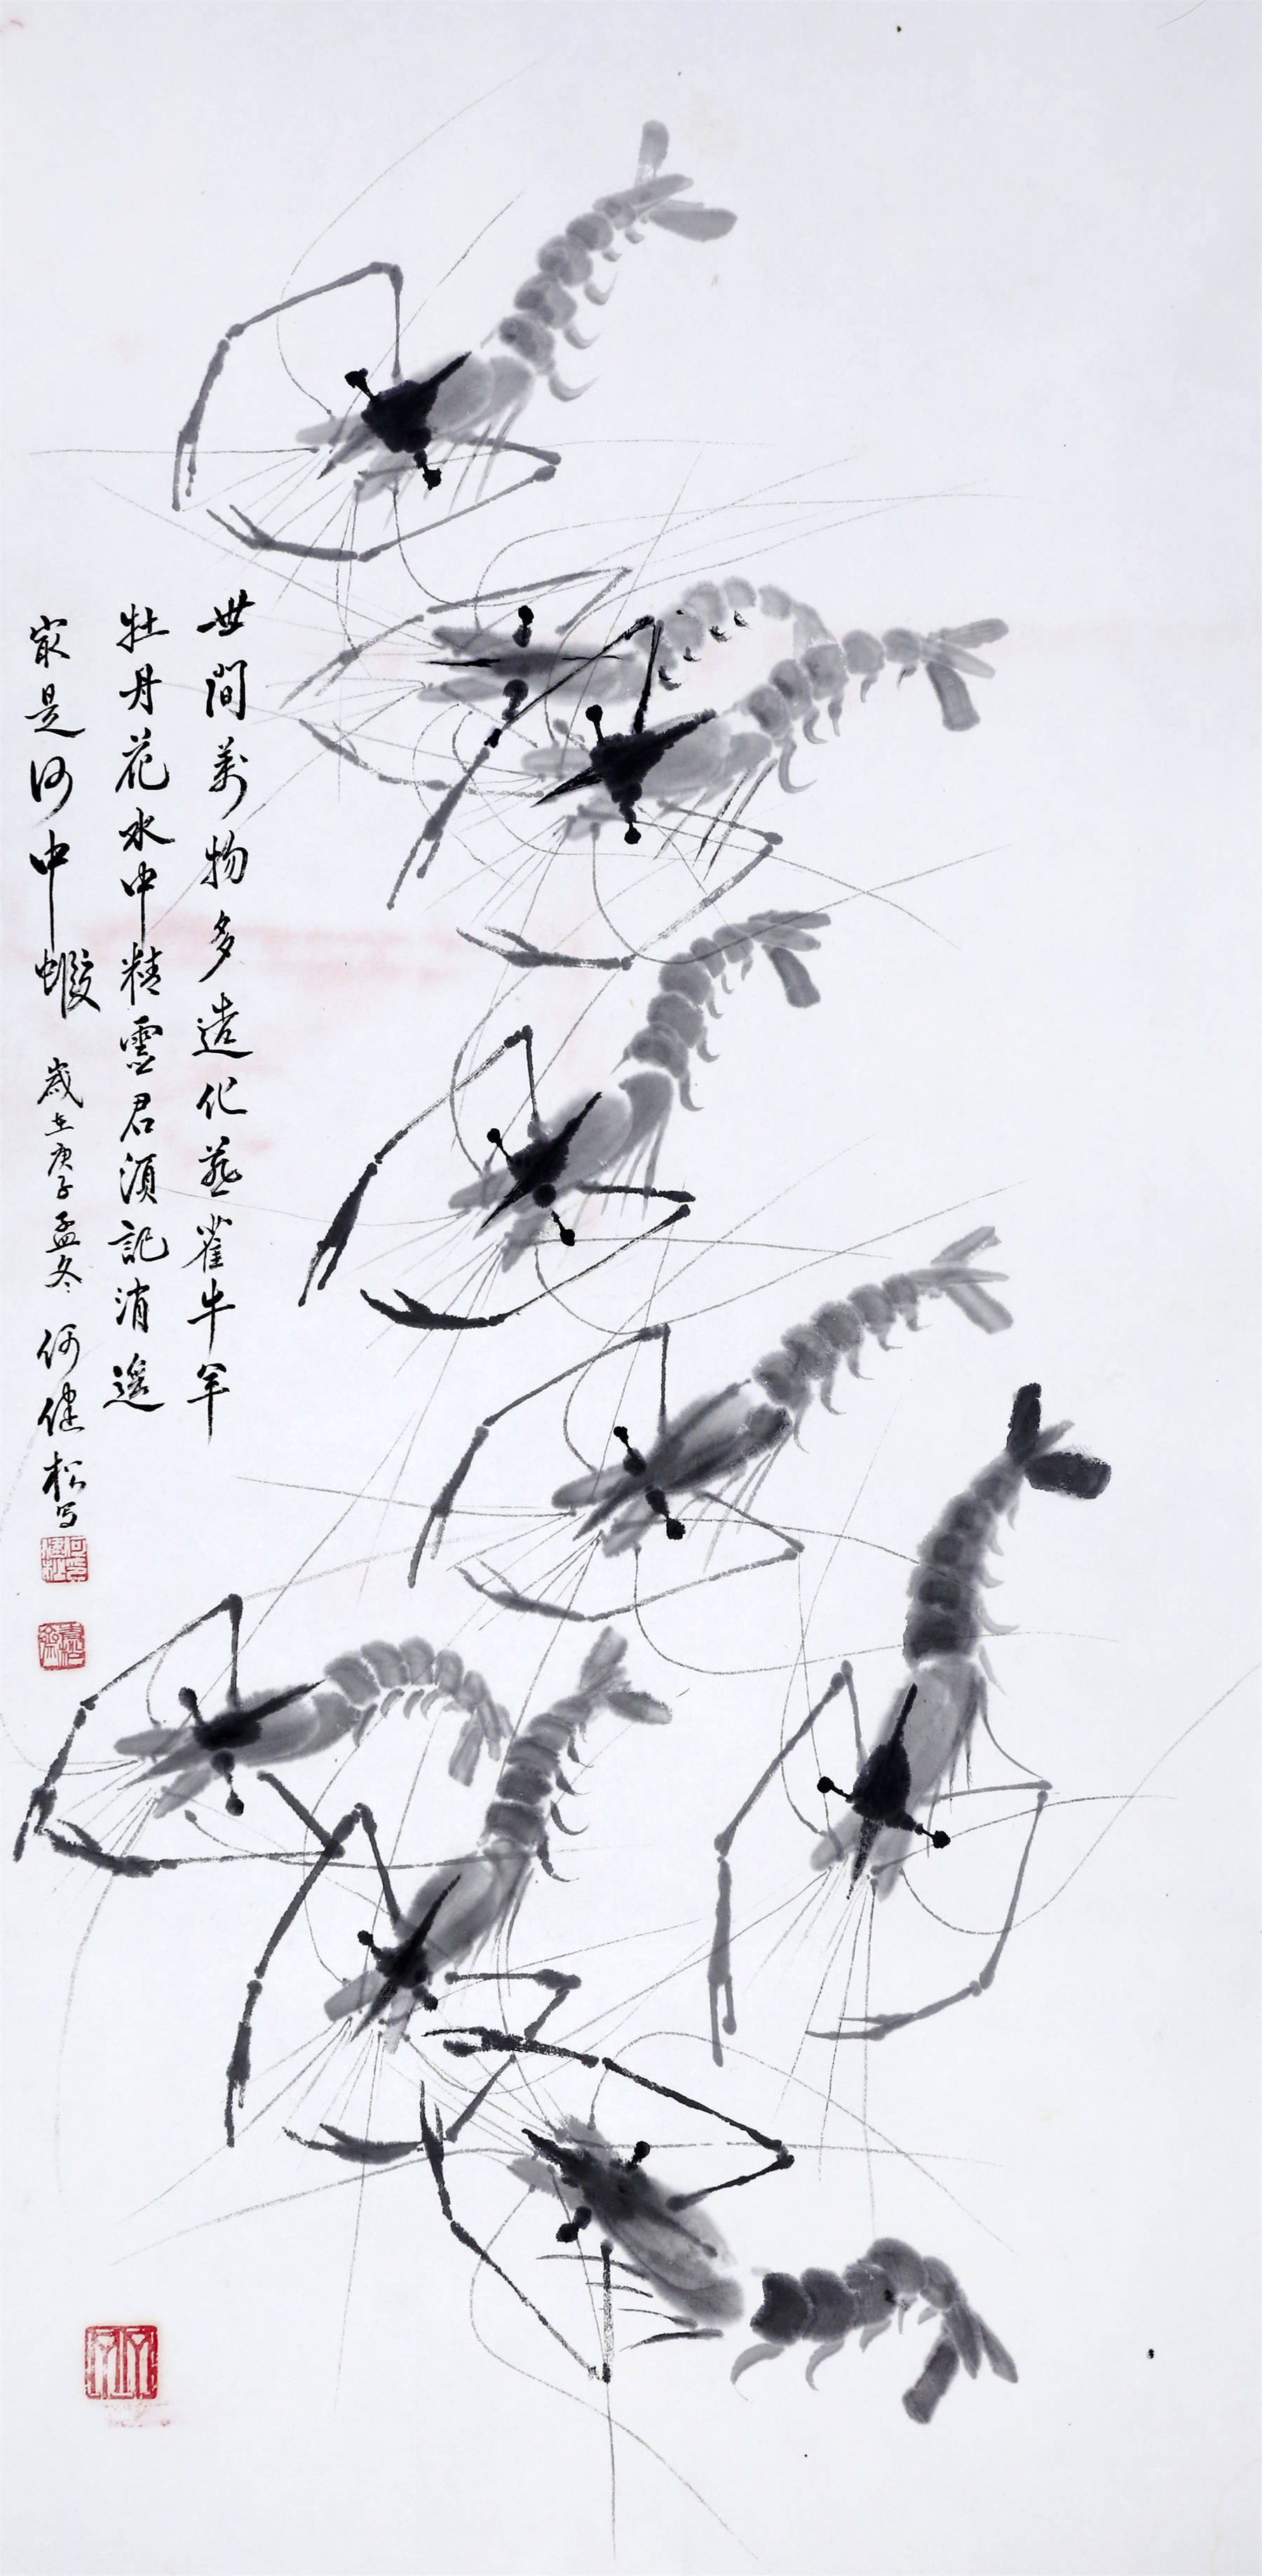 世間萬物多造化燕雀牛羊
牡丹花水中精靈君須記消遥
寂是河中蝦 歲在庚子孟冬 何健松写